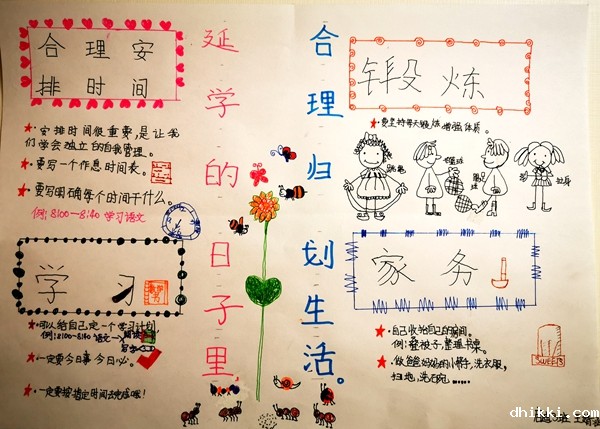 合理安
排时间
★安排时间很重要,是让我
们学会独立的自我管理。
★要写一个作息时间表。
★要写明确每个时间干什么。
例:8:00-8:40 学习语文
学习
★可以给自己定一个学习计划
例:8:00~8:40 语文→
★一定要今日事今日必。
★一定要按指定时间去完成哦!
延学的日子里
合理归划生活。
锻炼
★要坚持每天锻炼增强体质。
跳绳
家务
★自己收拾自己的房间。
例:叠被子,整理书桌。
★做爸爸妈妈的小帮手,洗衣服,
扫地,洗碗……
dhikki.com